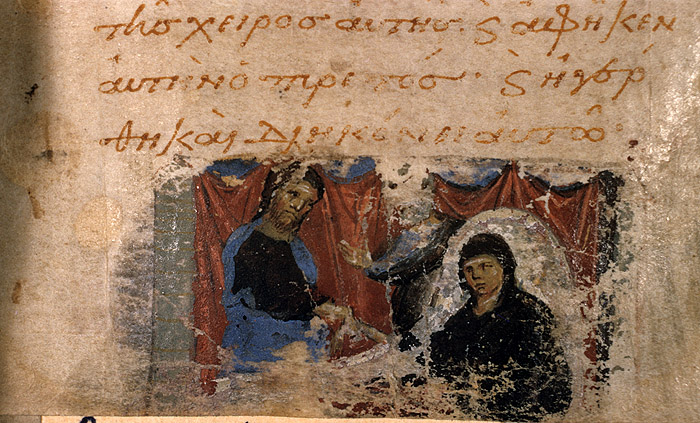 τῆς χειρὸς αὐτῆς· ϛ ἀφῆκεν
αὐτὴν ὁ πυρετός· ϛ ἠγέρ
θη καὶ διηκόνει αὐτῶ·